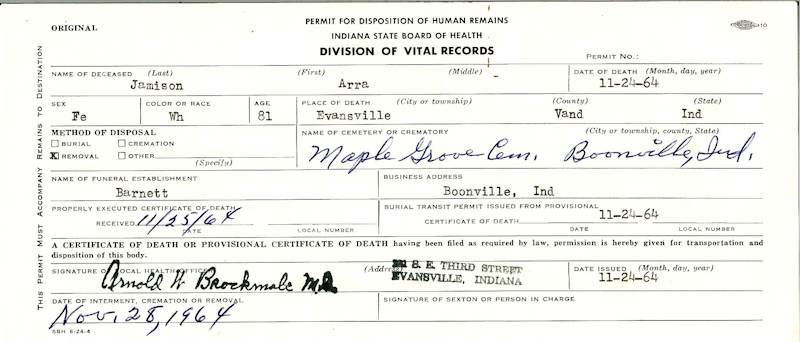 ORIGINAL
PERMIT FOR DISPOSITION OF HUMAN REMAINS
INDIANA STATE BOARD OF HEALTH
DIVISION OF VITAL RECORDS
10
PERMIT NO.:
THIS PERMIT MUST ACCOMPANY REMAINS TO DESTINATION
NAME OF DECEASED (Last) (First) (Middle) DATE OF DEATH (Month, day, year)
Jamison Arra 11-24-64
SEX COLOR OR RACE AGE PLACE OF DEATH (City or township) (County) (State)
Fe Wh 81 Evansville Vand Ind
METHOD OF DISPOSAL NAME OF CEMETERY OR CREMATORY (City or township, county, State)
BURIAL CREMATION
X REMOVAL OTHER
(Specify)
Maple Grove Cem. Boonville, Ind.
NAME OF FUNERAL ESTABLISHMENT BUSINESS ADDRESS
Barnett Boonville, Ind
PROPERLY EXECUTED CERTIFICATE OF DEATH BURIAL TRANSIT PERMIT ISSUED FROM PROVISIONAL
RECEIVED 11/25/64 CERTIFICATE OF DEATH 11-24-64
DATE LOCAL NUMBER DATE LOCAL NUMBER
A CERTIFICATE OF DEATH OR PROVISIONAL CERTIFICATE OF DEATH having been filed as required by law, permission is hereby given for transportation and
disposition of this body.
SIGNATURE OF LOCAL HEALTH OFFICER (Address) S. E. THIRD STREET DATE ISSUED (Month, day, year)
Arnold W Brockmole M.D. EVANSVILLE, INDIANA 11-24-64
DATE OF INTERMENT, CREMATION OR REMOVAL SIGNATURE OF SEXTON OR PERSON IN CHARGE
Nov. 28, 1964
SBH 6-24-4